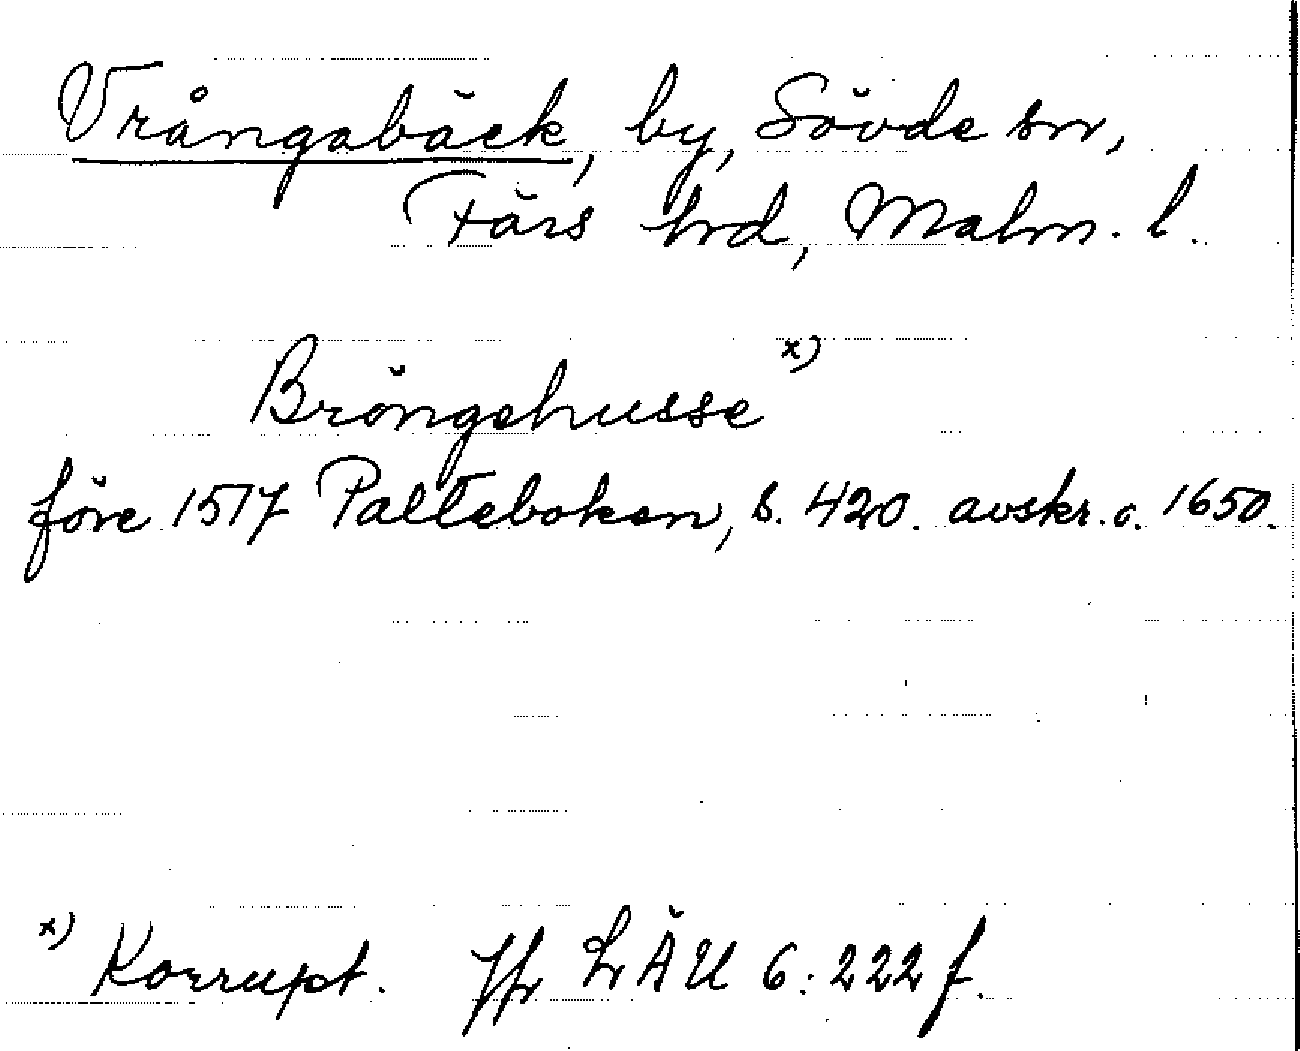 Vrångabäck, by, Sövde sn,
Färs hd, Malm. l.
Bröngehusse x)
före 1517 Palteboken, s. 420. avskr. c. 1650.
x) Korrupt. Jfr LÄU 6:222 f.